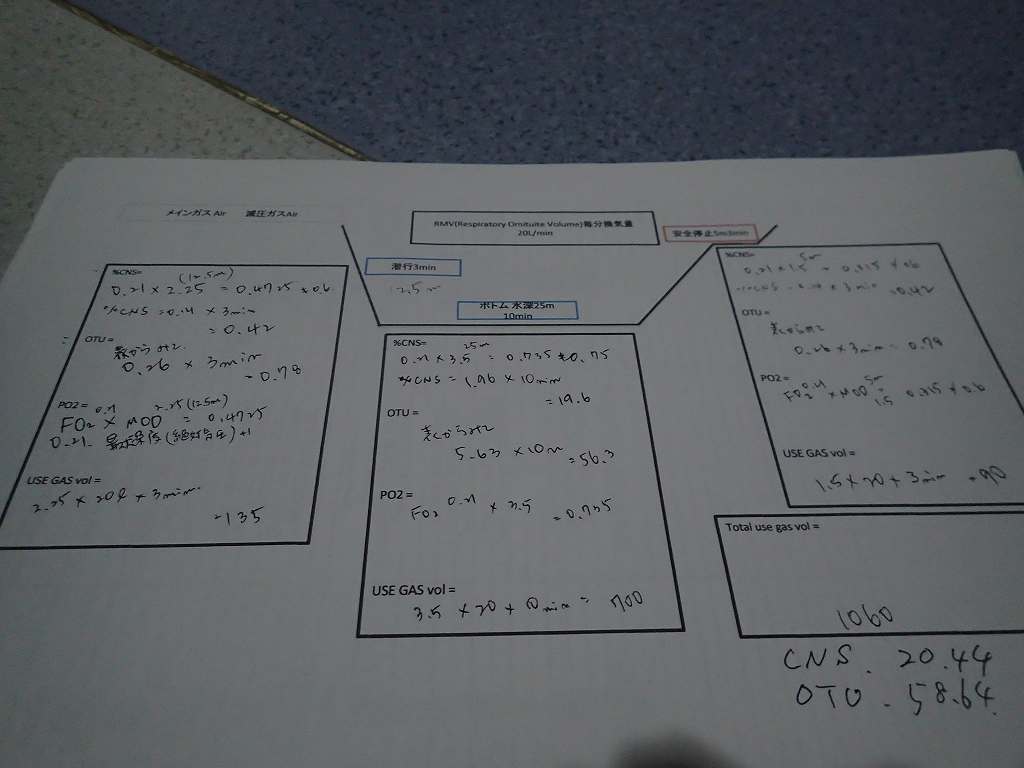 メインガス Air 減圧ガスAir
RMV(Respiratory Omituite Volume)毎分換気量
20L/min
安全停止5m3min
潜行3min
12.5m
ボトム 水深25m
10min
%CNS=
(12.5m)
0.21 × 2.25 = 0.4725 ≒ 0.6
%CNS = 0.14 × 3min
= 0.42
OTU =
表から
0.26 × 3min
= 0.78
PO2 = 0.21 2.25 (12.5m)
FO2 × MOD = 0.4725
0.21 (絶対気圧) +1
USE GAS vol =
2.25 × 20ℓ × 3min
= 135
%CNS=
25m
0.21 × 3.5 = 0.735 ≒ 0.75
%CNS = 1.96 × 10min
= 19.6
OTU =
表から
5.63 × 10m = 56.3
PO2 =
FO2 0.21 × 3.5 = 0.735
USE GAS vol =
3.5 × 20 × 10min = 700
%CNS=
5m
0.21 × 1.5 = 0.315 ≒ 0.6
%CNS = 0.14 × 3min = 0.42
OTU =
表から
0.26 × 3min = 0.78
PO2 = 0.21 5m
FO2 × MOD 1.5 0.315 ≒ 0.6
USE GAS vol =
1.5 × 20 × 3min = 90
Total use gas vol =
1060
CNS. 20.44
OTU. 58.64